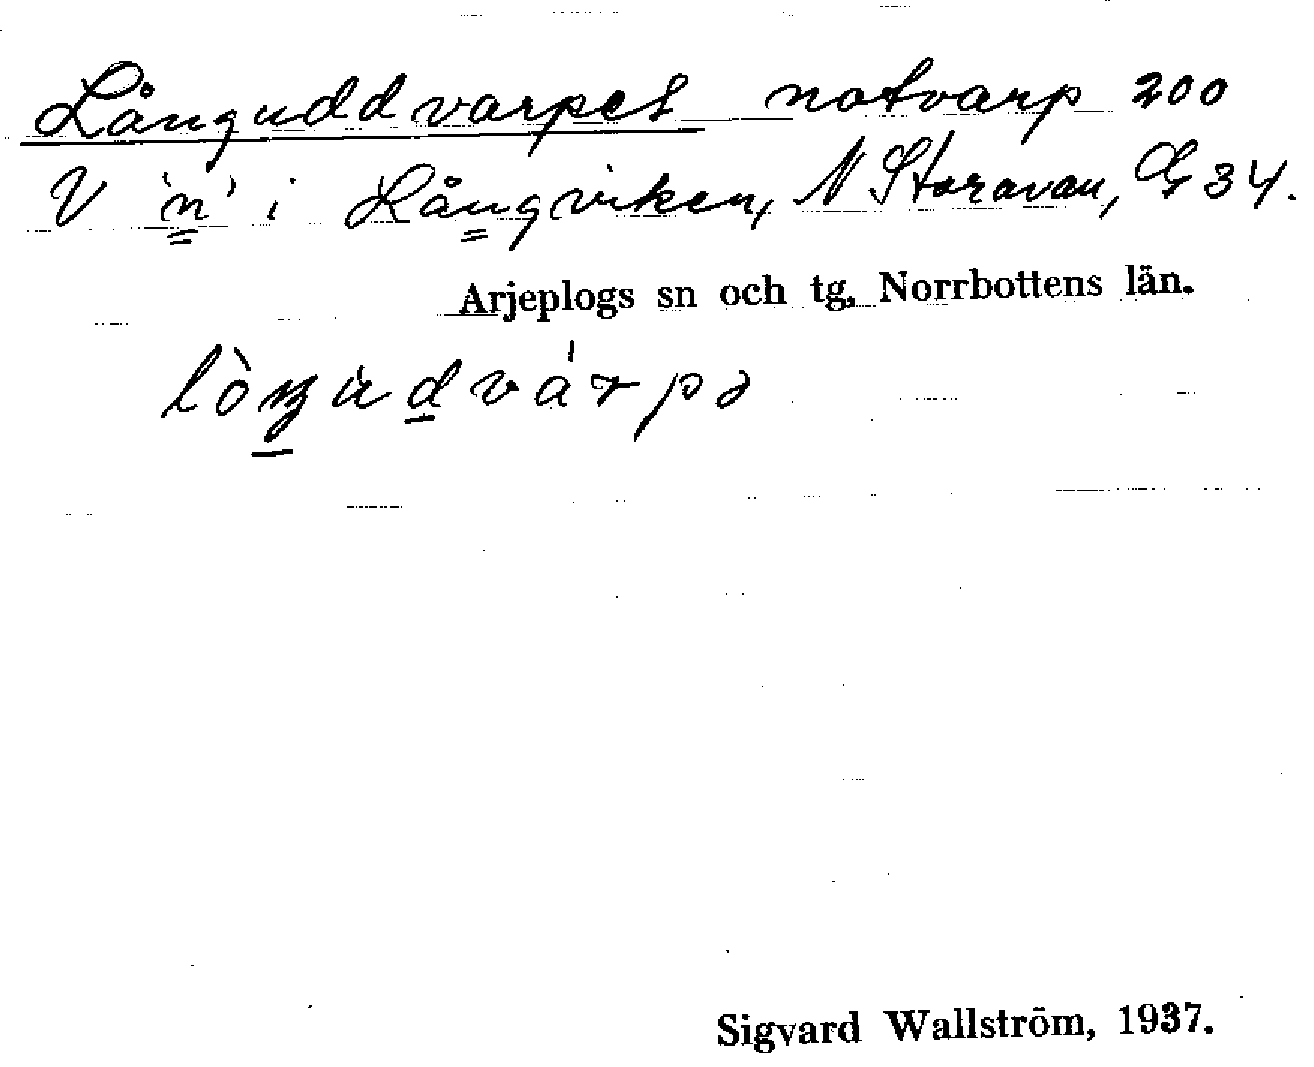 Långuddvarpet notvarp 200
V 'n' i Långviken, N Storavan, G 34.
Arjeplogs sn och tg, Norrbottens län.
lòŋùdvárpə
Sigvard Wallström, 1937.